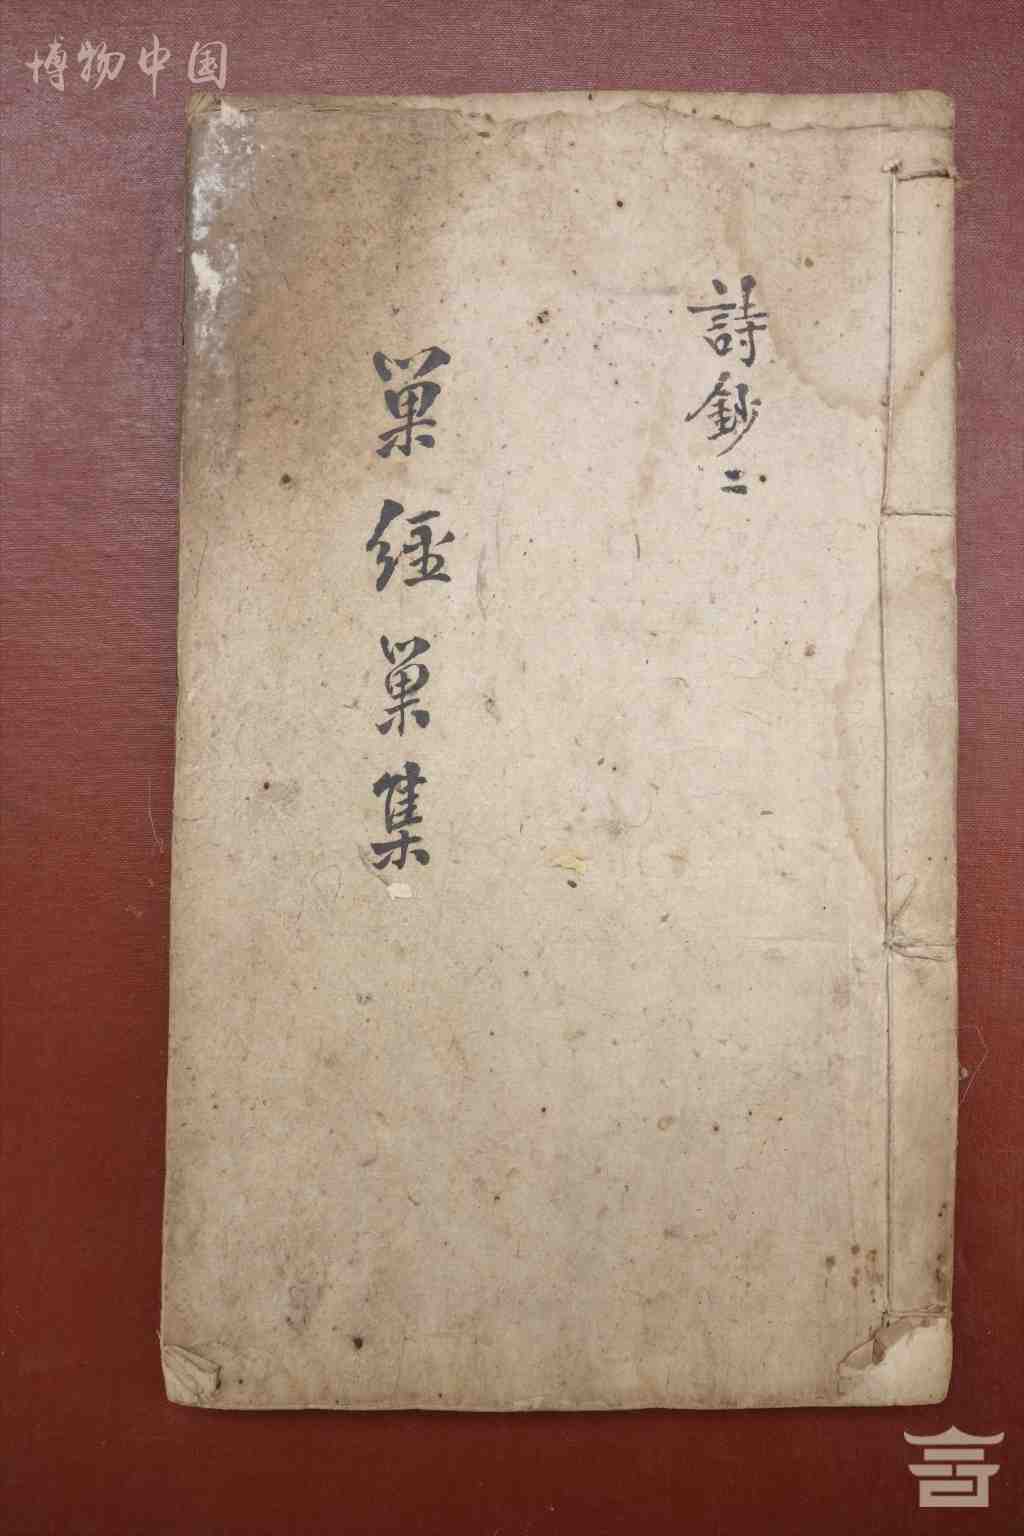 博物中国
詩鈔二
巢經巢集